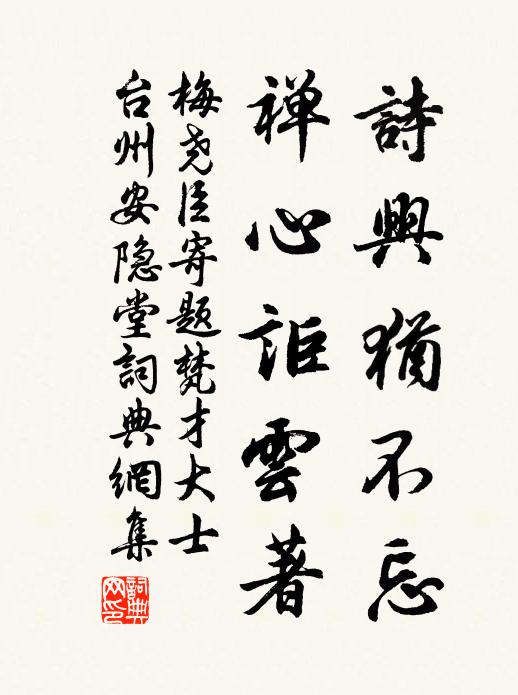 詩興猶不忘
禅心詎雲著
梅尧臣寄题梵才大士
台州安隐堂詞典網集
詞典
网印